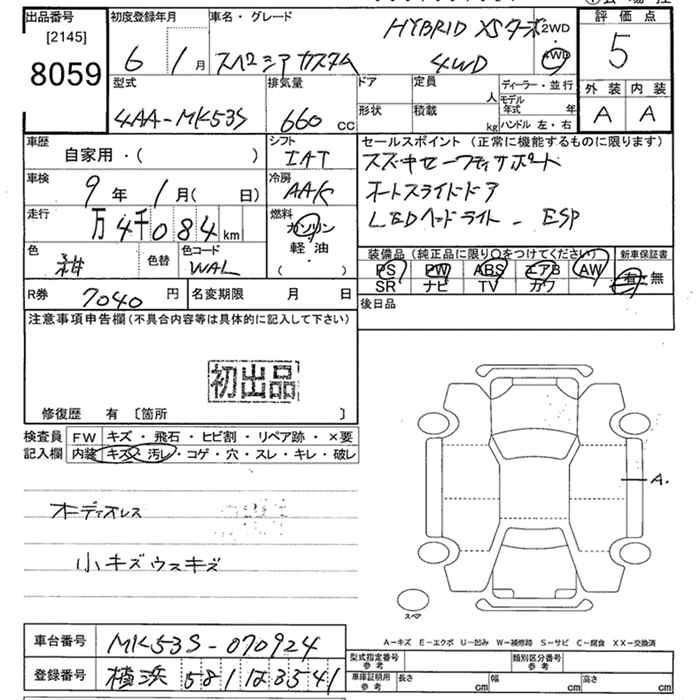 出品番号 初度登録年月 車名・グレード HYBRID XSターボ 2WD 評価点
[2145] 6 / 1月 スペーシアカスタム 4WD 4WD 5
8059
型式 排気量 ドア 定員 人 ディーラー・並行 外装 内装
4AA-MK53S 660 CC 形状 積載 kg モデル年式 年 A A
ハンドル 左・右
車歴 シフト セールスポイント (正常に機能するものに限ります)
自家用・( ) IAT スズキセーフティサポート
車検 9年 1月( 日) 冷房 AAC オートスライドドア
走行 万4千084km 燃料 ガソリン LEDヘッドライト - ESP
軽・油
( )
色 色替 色コード 装備品 (純正品に限り○をつけてください) 新車保証書
WAL PS PW ABS エアB AW 有・無
SR ナビ TV カワ
R券 7040円 名変期限 月 日 後日品
注意事項申告欄(不具合内容等は具体的に記入して下さい)
初出品
修復歴 有 〔箇所 〕
検査員 FW キズ・飛石・ヒビ割・リペア跡・×要
記入欄 内装 キズ・汚レ・コゲ・穴・スレ・キレ・破レ
A.
オーディオレス
小キズウスキズ
スペア
A-キズ E-エクボ U-凹み W-補修跡 S-サビ C-腐食 XX-交換済
車台番号 MK53S-070924 型式指定番号 参考 類別区分番号 参考
登録番号 横浜 581 は 3541 車庫証明用 参考 長さ cm 幅 cm 高さ cm